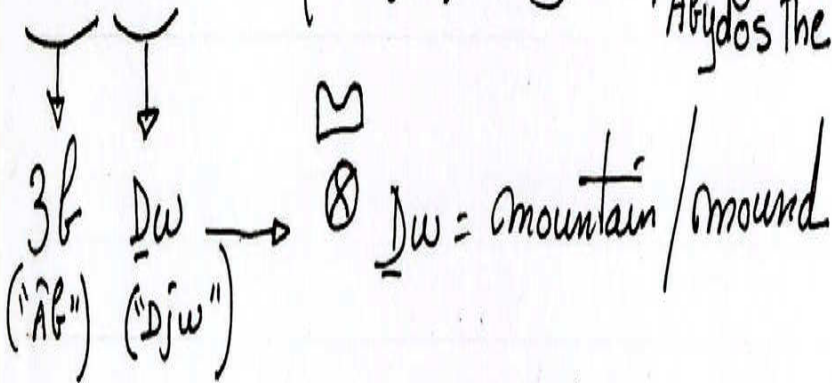 Abydos The
3b Ḏw → Ḏw = mountain / mound
("Ab") ("Djw")